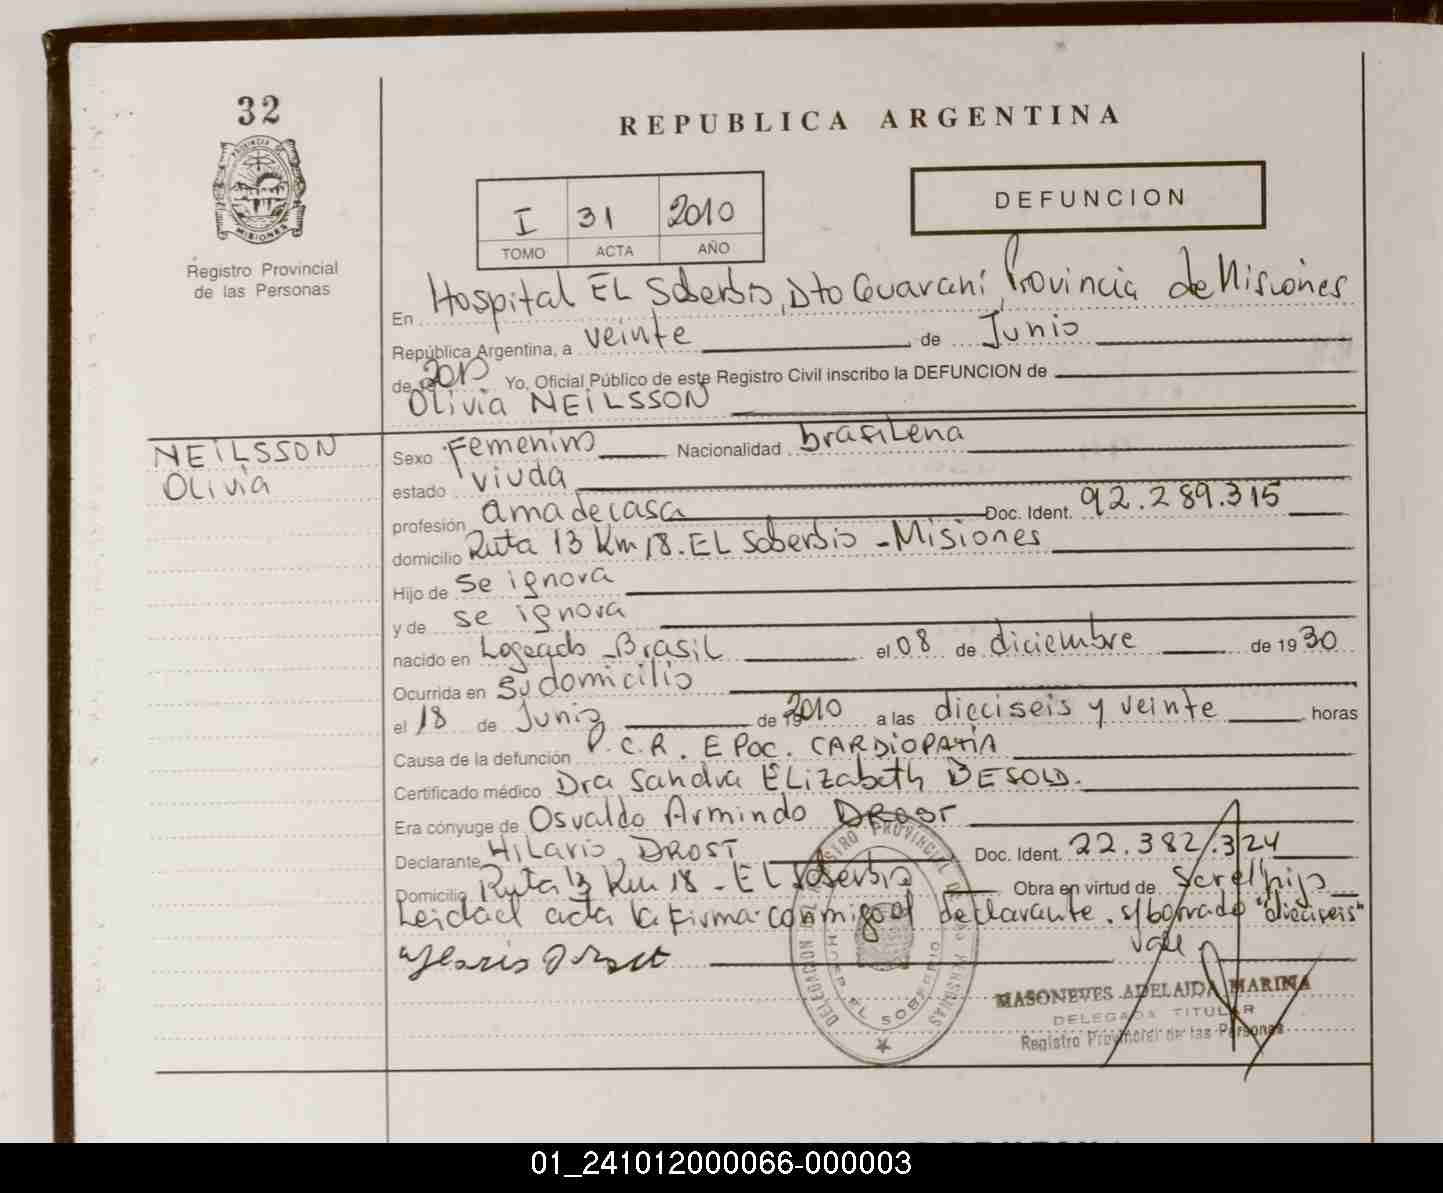 32
PROVINCIA DE
MISIONES
Registro Provincial
de las Personas
REPUBLICA ARGENTINA
I 31 2010
TOMO ACTA AÑO
DEFUNCION
En Hospital EL Soberbio, Dto Guaraní, Provincia de Misiones
República Argentina, a veinte de Junio
de 2010 Yo, Oficial Público de este Registro Civil inscribo la DEFUNCION de
Olivia NEILSSON
NEILSSON
Olivia
Sexo Femenino Nacionalidad brasilena
estado viuda
profesión ama de casa Doc. Ident. 92.289.315
domicilio Ruta 13 Km 18. EL Soberbio - Misiones
Hijo de se ignora
y de se ignora
nacido en Logeado - Brasil el 08 de diciembre de 1930
Ocurrida en Su domicilio
el 18 de Junio de 2010 a las dieciseis y veinte horas
Causa de la defunción P.C.R. EPOC. CARDIOPATIA
Certificado médico Dra Sandra ELizabeth BESOLD.
Era cónyuge de Osvaldo Armindo DROST
Declarante Hilario DROST Doc. Ident. 22.382.324
Domicilio Ruta 13 Km 18 - EL Soberbio Obra en virtud de Ser el hijo
Leida el acta la firma conmigo el declarante. s/borrado "dieciseis"
Vale
Hilario Drost
DELEGACION DEL REGISTRO PROVINCIAL DE LAS PERSONAS
EL SOBERBIO
MASONEVES ADELAIDA MARINA
DELEGADA TITULAR
Registro Provincial de las Personas
01_241012000066-000003